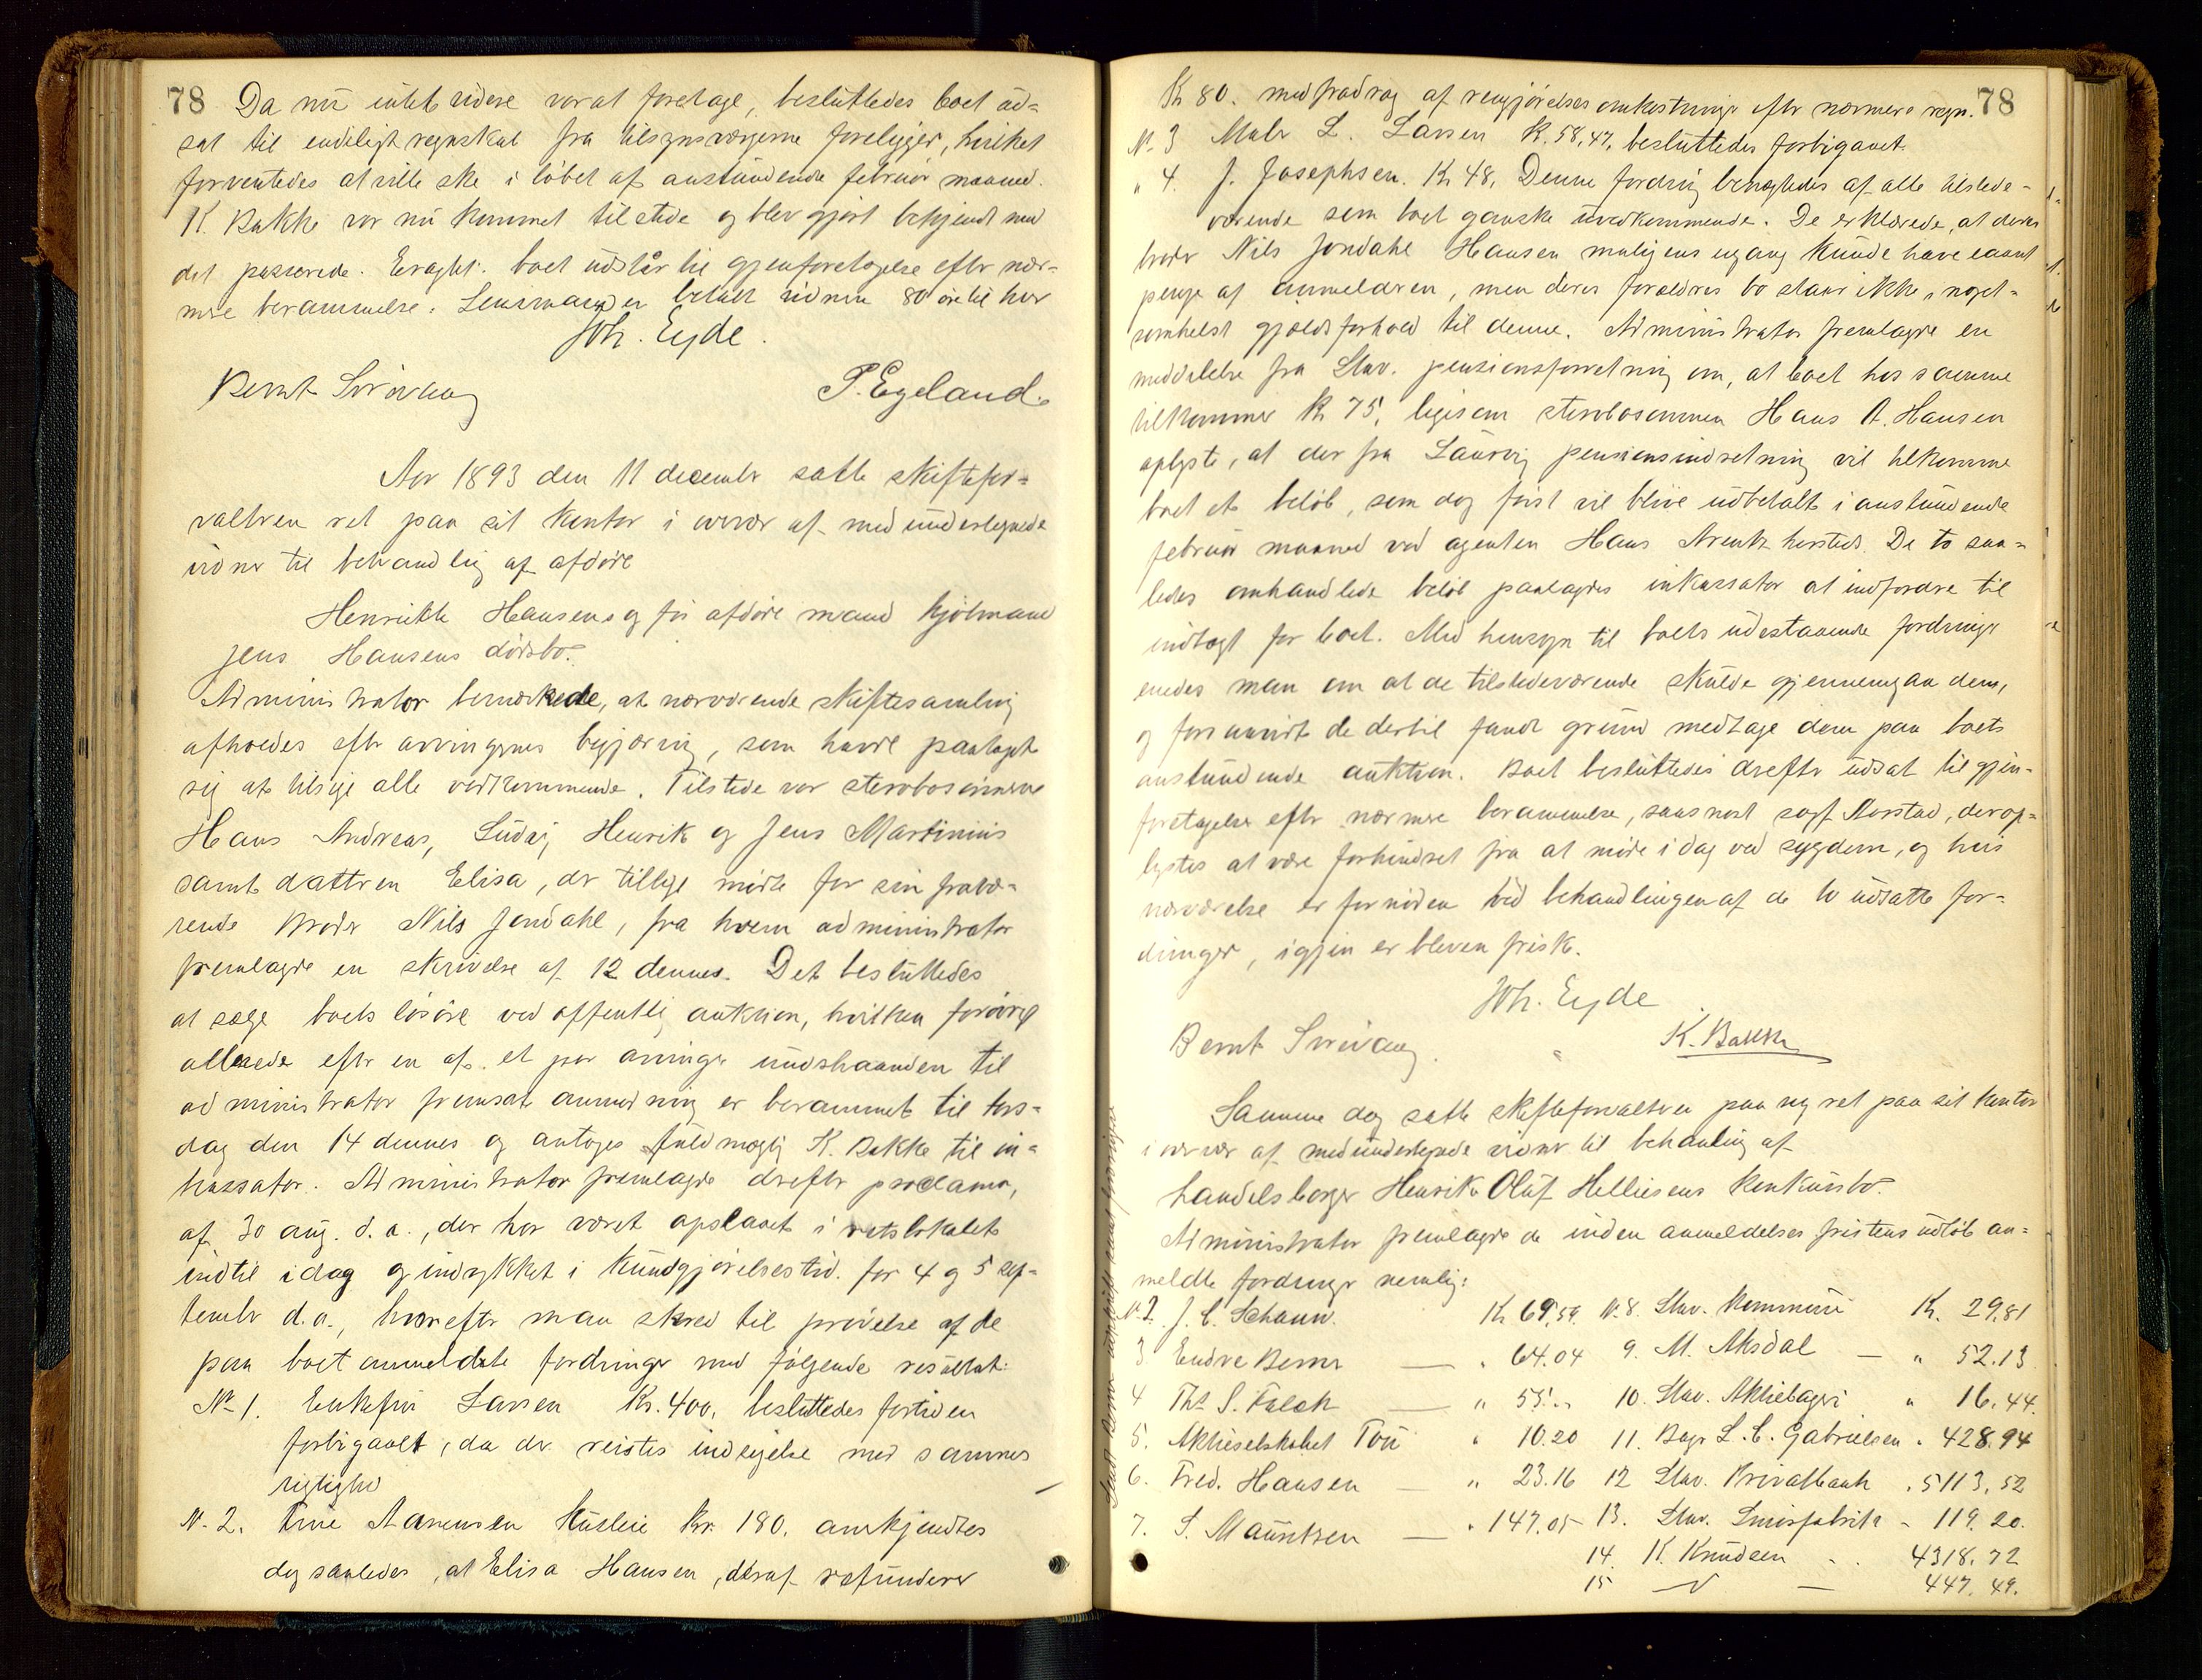 78 Da nu intet videre var at foretage, besluttedes boet ud-
sat til endeligt regnskab fra tilsynsværgerne foreligger, hvilket
forventedes at ville ske i løbet af anstundende februar maaned.
K. Bakke var nu kommet tilstede og blev gjort bekjendt med
det passerede. Eragtet: boet udstår til gjenforetagelse efter nær-
mere berammelse. Lensmanden betalt vidnerne 80 øre til hver
Joh. Eyde.
Bernt Sørvaag
P. Egeland.
Aar 1893 den 11 december satte skiftefor-
valteren ret paa sit kontor i overvær af medundertegnede
vidner til behandling af afdøde
Henrikke Hansens og før afdøde mand kjølmand
Jens Hansens dødsbo.
Administrator bemærkede, at nærværende skiftesamling
afholdes efter arvingernes begjæring, som havde paataget
sig at tilsige alle vedkommende. Tilstede var stervbosønnerne
Hans Andreas, Ludvig, Henrik og Jens Martinius
samt datteren Elisa, der tillige mødte for sin fravæ-
rende broder Nils Jondahl, fra hvem administrator
fremlagde en skrivelse af 12 dennes. Det besluttedes
at sælge boets løsøre ved offentlig auktion, hvilken forøvrigt
allerede efter en af et par arvinger underhaanden til
administrator fremsat anmodning er berammet til tors-
dag den 14 dennes og antoges fuldmægtig K. Bakke til in-
kassator. Administrator fremlagde derefter proclama,
af 30 aug. d. a., der har været opslaaet i retslokalet
indtil idag og indrykket i Kundgjørelsestid. for 4 og 5 sep-
tember d.a., hvorefter man skred til prøvelse af de
paa boet anmeldte fordringer med følgende resultat:
No 1. Enkefru Larsen Kr. 400, besluttedes fortiden
forbigaaet, da der reistes indsigelse mod sammes
rigtighed
N. 2. Trine Aanensen Husleie Kr. 180. anerkjendtes
dog saaledes, at Elisa Hansen, deraf refunderer
Kr 80. med fradrag af rengjørelses omkostninger efter nærmere regn. 78
N. 3 Maler L. Larsen K. 58,47, besluttedes forbigaaet.
" 4. J. Josephsen. Kr 48. Denne fordring benegtedes af alle tilstede-
værende som boet ganske uvedkommende. De erklærede, at deres
broder Nils Jondahl Hansen muligens engang kunde have laant
penge af anmelderen, men deres forældres bo staar ikke i noget-
somhelst gjældsforhold til denne. Administrator fremlagde en
meddelelse fra Stav. pensionsforretning om, at boet hos samme
tilkommer Kr 75, ligesom stervbosønnen Hans A. Hansen
oplyste, at der fra Laurvig pensionsindretning vil tilkomme
boet et beløb, som dog først vil blive udbetalt i anstundende
februar maaned ved agenten Hans Arentz hersteds. De to saa-
ledes omhandlede beløb paalagdes inkassator at indfordre til
indtægt for boet. Med hensyn til boets udestaaende fordringer
enedes man om at de tilstedeværende skulde gjennemgaa dem,
og forsaavidt de dertil fandt grund medtage dem paa boets
anstundende auktion. Boet besluttedes derefter udsat til gjen-
foretagelse efter nærmere berammelse, saasnart sagf. Aarstad, der op-
lystes at være forhindret fra at møde i dag ved sygdom, og hvis
nærværelse er fornøden ved behandlingen af de to udsatte for-
dringer, igjen er bleven frisk.
Joh. Eyde
Bernt Sørvaag.
K. Bakke
Samme dag satte skifteforvalteren paa ny ret paa sit kontor
i overvær af medundertegnede vidner til behanling af
handelsborger Henrik Oluf Helliesens konkursbo.
Administrator fremlagde de inden anmeldelses fristens udløb an-
meldte fordringer nemlig:
N. 2. J. C. Schauw. Kr 69,59. N. 8. Stav. kommune Kr. 29.81
3 Endre Berner — " 64.04 9. M. Aksdal — " 52.13
4 Ths S. Falck — " 55... 10. Stav. Aktiebageri " 16.44
5. Aktieselskabet Tou " 10.20 11. Bager L. C. Gabrielsen " 428.94
6. Fred. Hansen — " 23.16 12 Stav. Privatbank " 5113.52
7. S. Mauritzen — " 147.05 13. Stav. Smørfabrik - 119.20.
14. K. Knudsen " . 4318.72
15 — 447.49.